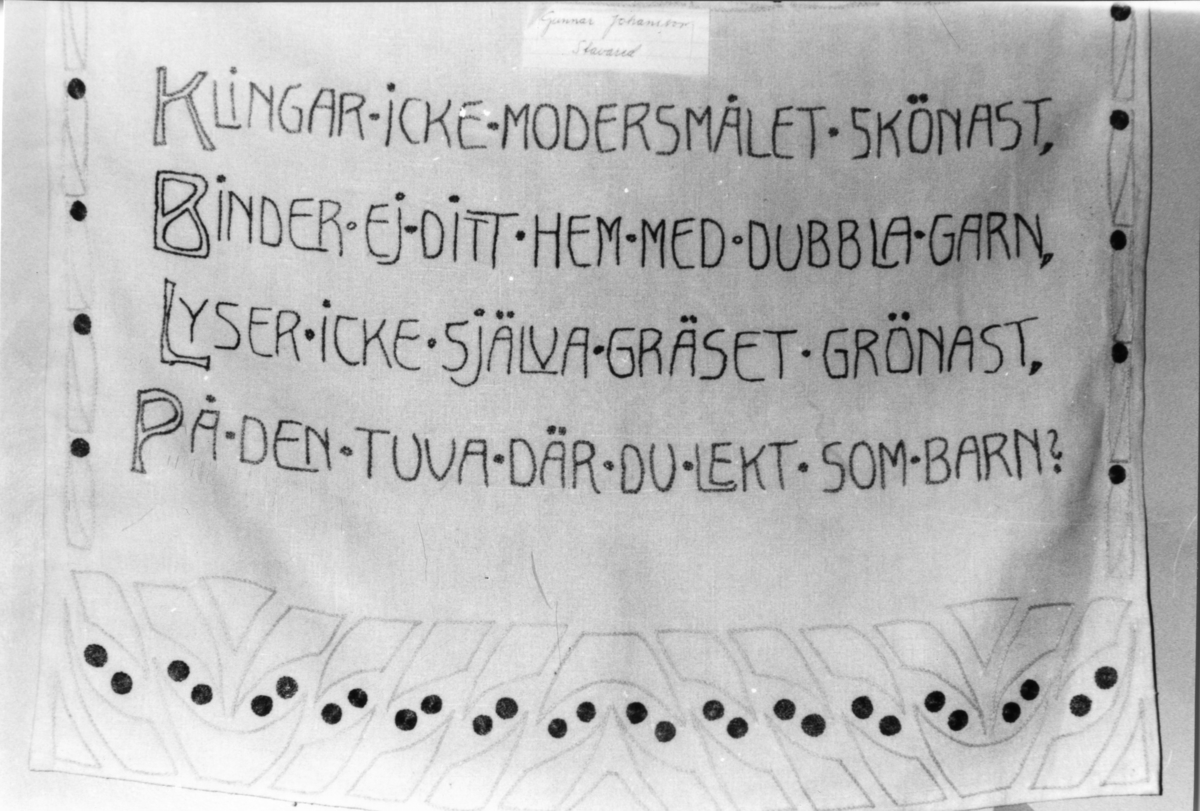 Gunnar Johansson
Stavared
KLINGAR·ICKE·MODERSMÅLET·SKÖNAST,
BINDER·EJ·DITT·HEM·MED·DUBBLA·GARN,
LYSER·ICKE·SJÄLVA·GRÄSET·GRÖNAST,
PÅ·DEN·TUVA·DÄR·DU·LEKT·SOM·BARN?